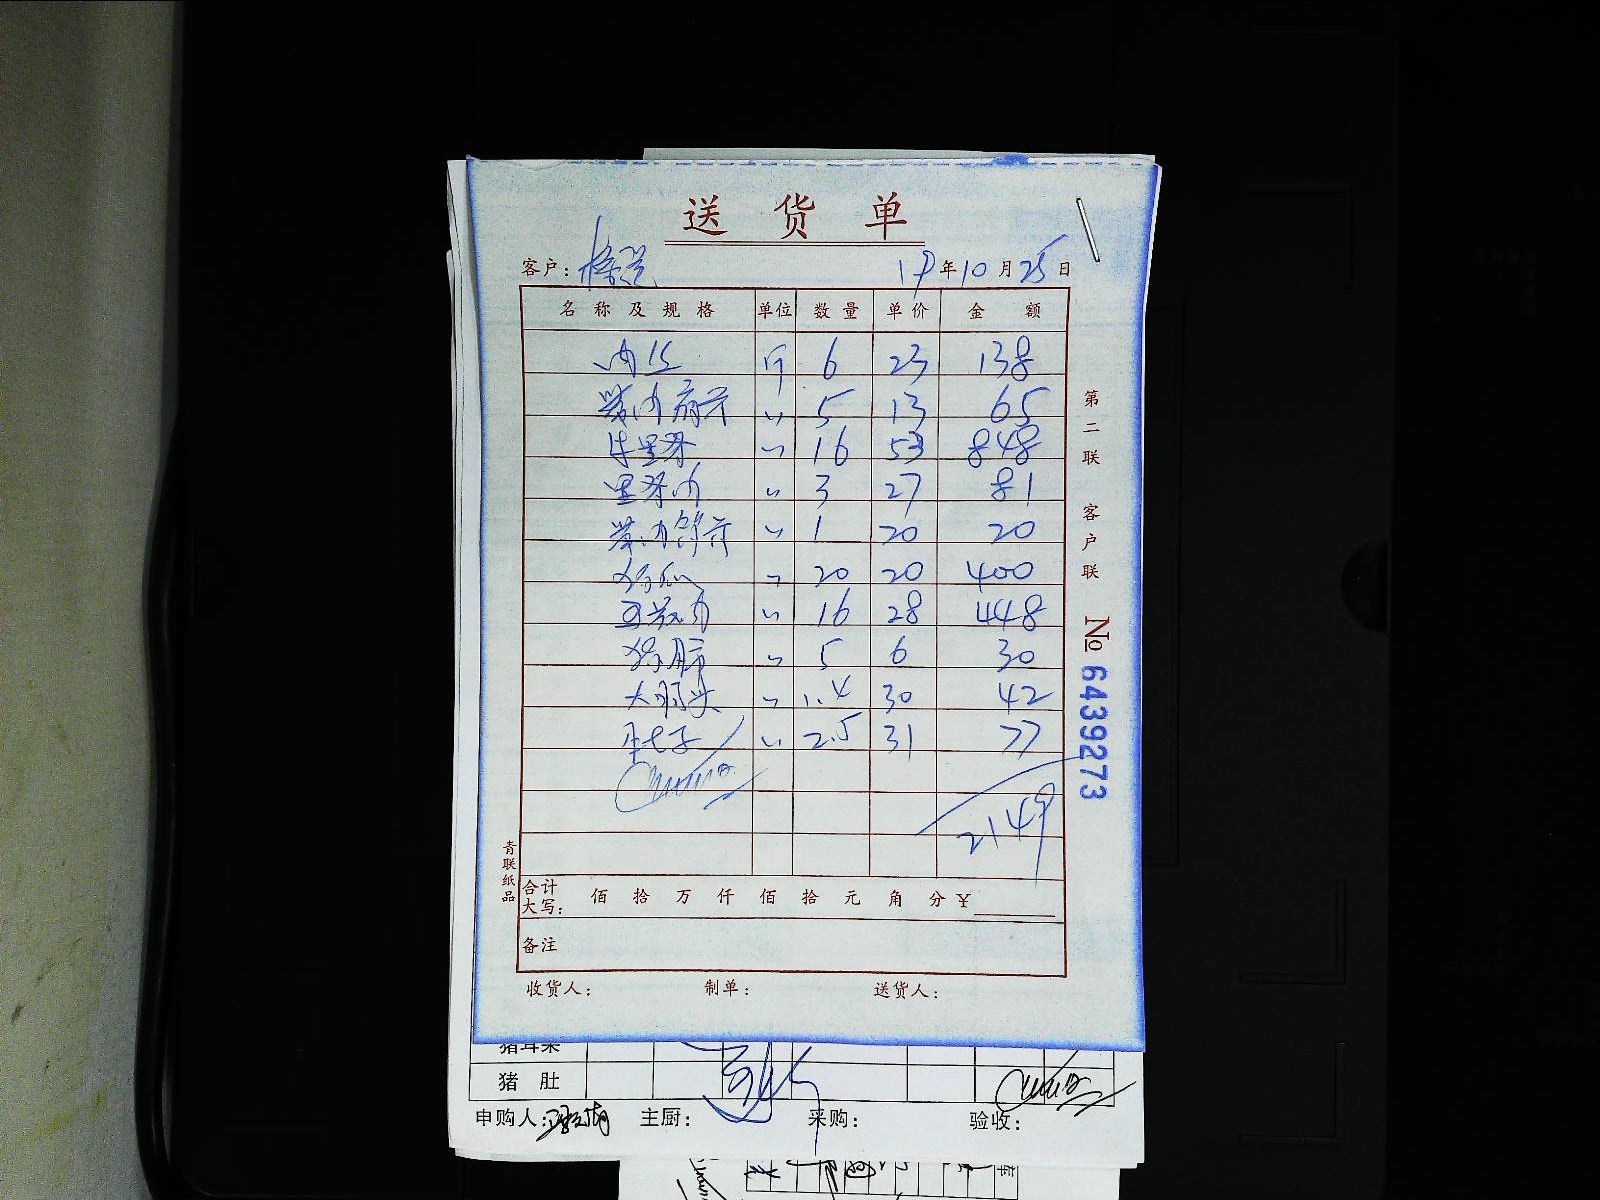 送货单
客户：
19年10月25日
名称及规格 单位 数量 单价 金额
肉丝 斤 6 23 138
带肉扇骨 〃 5 13 65
牛里脊 〃 16 53 848
里脊肉 〃 3 27 81
带肉筒骨 〃 1 20 20
〃 20 20 400
〃 16 28 448
〃 5 6 30
大 头 〃 1.4 30 42
〃 2.5 31 77
2149
合计大写： 佰 拾 万 仟 佰 拾 元 角 分 ¥
备注
收货人： 制单： 送货人：
第二联 客户联
No 6439273
青联纸品
猪耳朵
猪肚
申购人： 主厨： 采购： 验收：